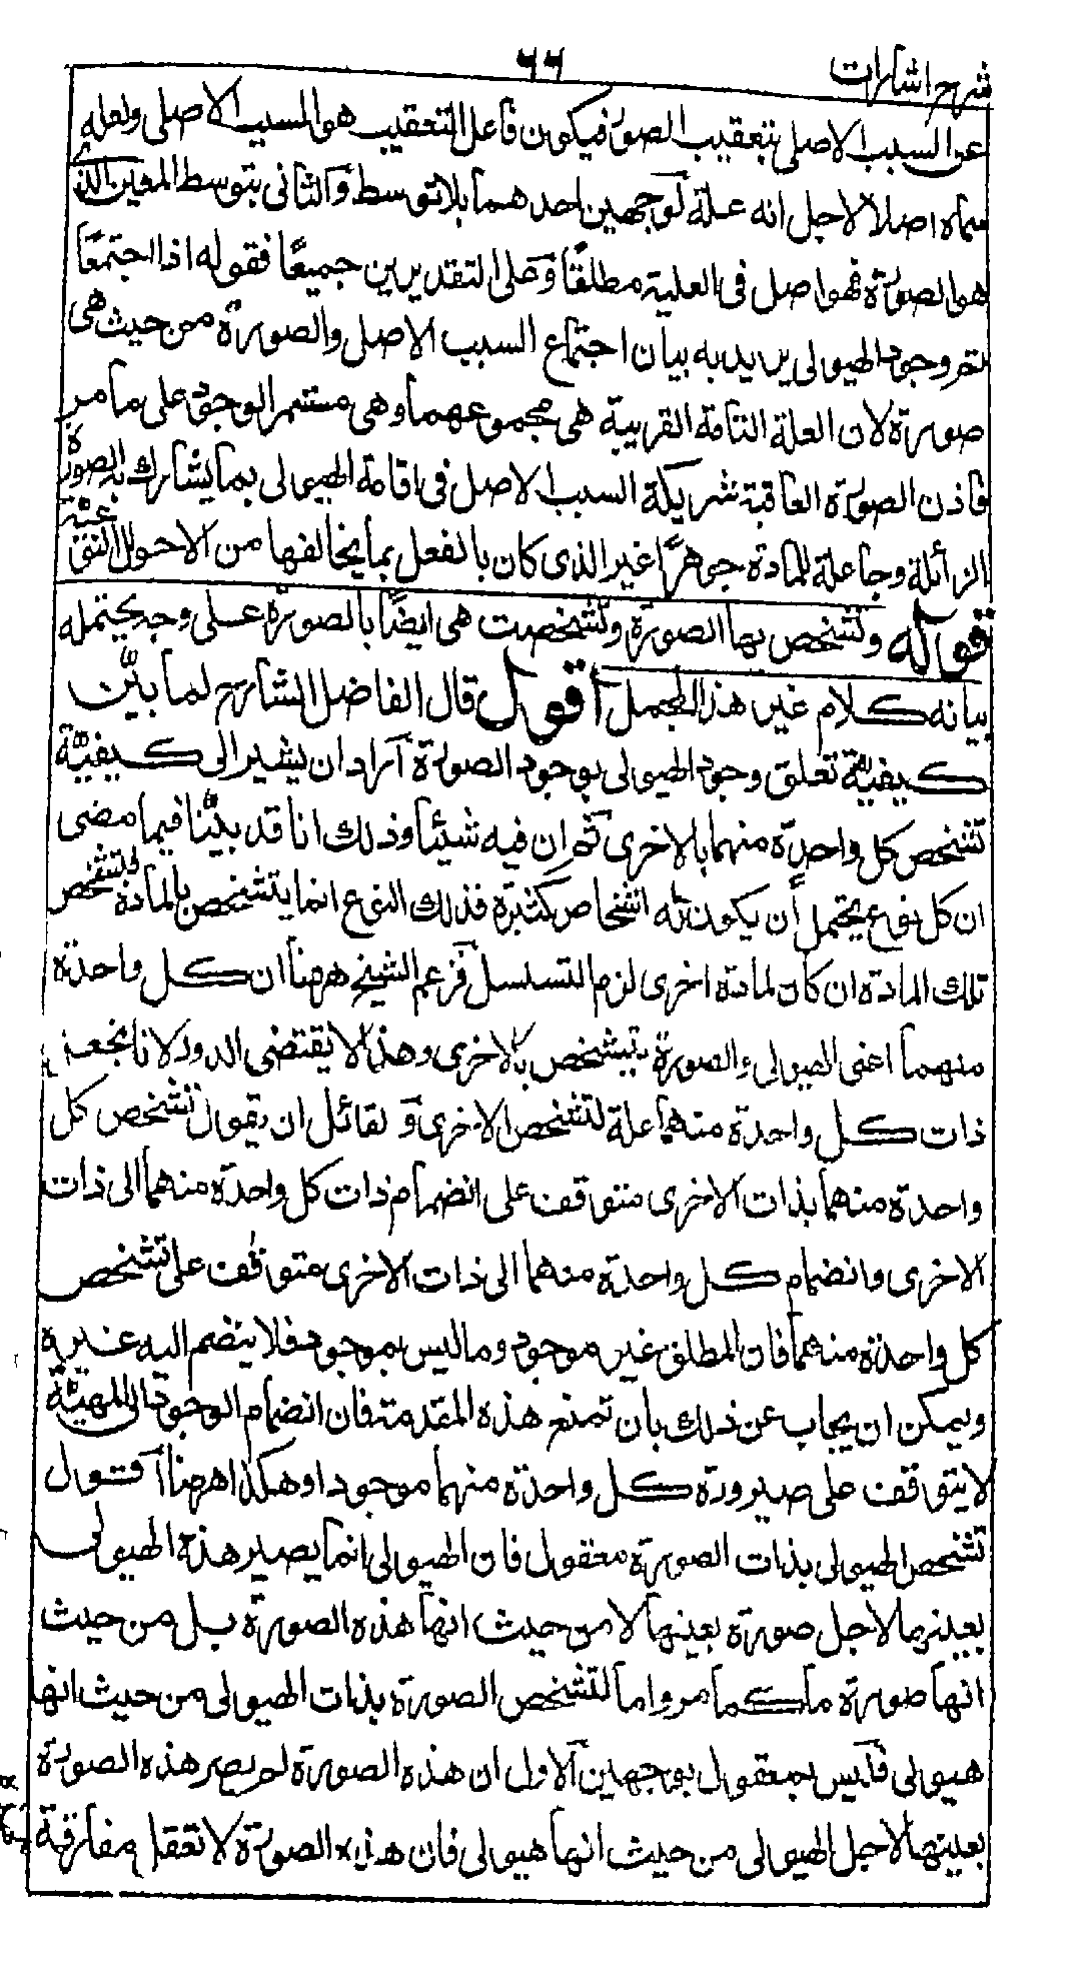 شرح اشارات
٦٦
عن السبب الاصلى بتعقيب الصور فيكون فاعل التعقيب هو السبب الاصلى ولعله
سماه اصلا لاجل انه علة لوجهين احدهما بلا توسط والثانى بتوسط المعين الذى
هو الصورة فهو اصل فى العلية مطلقا وعلى التقديرين جميعا فقوله اذا اجتمعا
تم وجود الهيولى يريد به بيان اجتماع السبب الاصل والصورة من حيث هى
صورة لان العلة التامة القريبة هى مجموعهما وهى مستمر الوجود على ما مر
فاذن الصورة العاقبة شريكة السبب الاصل فى اقامة الهيولى بما يشارك به الصورة
الزائلة وجاعلة للمادة جوهرا غير الذى كان بالفعل بما يخالفها من الاحوال النوعية
قوله وتشخص بها الصورة وتشخصت هى ايضا بالصورة على وجه يحتمله
بيانه كلام غير هذا المجمل اقول قال الفاضل الشارح لما بين
كيفية تعلق وجود الهيولى بوجود الصورة اراد ان يشير الى كيفية
تشخص كل واحدة منهما بالاخرى ثم ان فيه شيئا وذلك انا قد بينا فيما مضى
ان كل نوع يحتمل ان يكون له اشخاص كثيرة فذلك النوع انما يتشخص بالمادة فتشخص
تلك المادة ان كان لمادة اخرى لزم التسلسل فزعم الشيخ ههنا ان كل واحدة
منهما اعنى الهيولى والصورة يتشخص بالاخرى وهذا لا يقتضى الدور لانا نجعل
ذات كل واحدة منهما علة لتشخص الاخرى ولقائل ان يقول تشخص كل
واحدة منهما بذات الاخرى متوقف على انضمام ذات كل واحدة منهما الى ذات
الاخرى وانضمام كل واحدة منهما الى ذات الاخرى متوقف على تشخص
كل واحدة منهما فان المطلق غير موجود وما ليس بموجود فلا ينضم اليه غيره
ويمكن ان يجاب عن ذلك بان تمنع هذه المقدمة فان انضمام الوجود الى المهية
لا يتوقف على صيرورة كل واحدة منهما موجودا وهكذا ههنا اقول
تشخص الهيولى بذات الصورة معقول فان الهيولى انما يصير هذه الهيولى
بعينها لاجل صورة بعينها لا من حيث انها هذه الصورة بل من حيث
انها صورة ما كما مر واما لتشخص الصورة بذات الهيولى من حيث انها
هيولى فليس بمعقول بوجهين الاول ان هذه الصورة لم يصر هذه الصورة
بعينها لاجل الهيولى من حيث انها هيولى فان هذه الصورة لا تعقل مفارقة